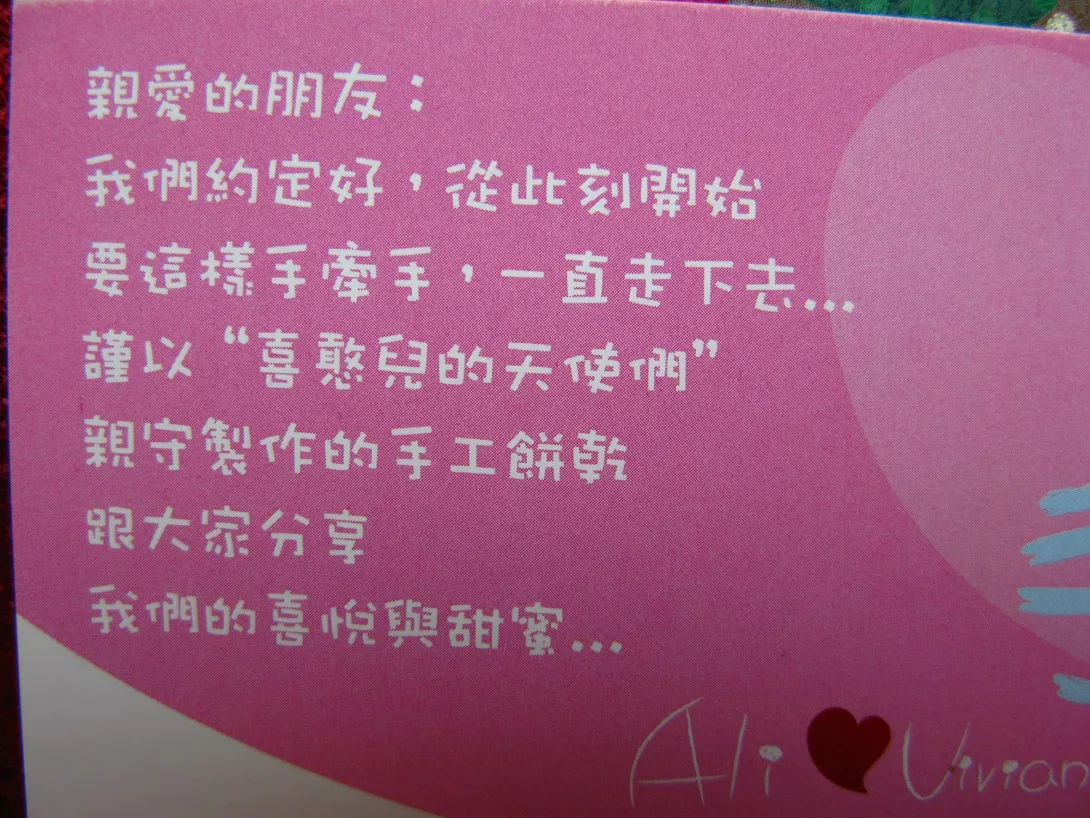 親愛的朋友：
我們約定好，從此刻開始
要這樣手牽手，一直走下去...
謹以“喜憨兒的天使們”
親守製作的手工餅乾
跟大家分享
我們的喜悅與甜蜜...
Ali Vivian